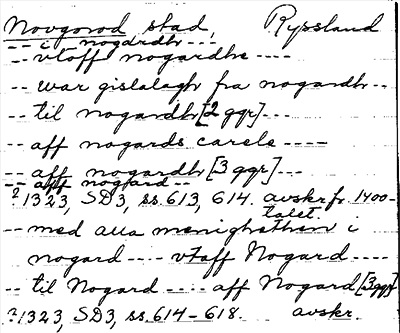 Novgorod stad, Ryssland
-- i nogardhr ---
-- vtoff nogardhe ----
-- war gislalagh fra nogardhr --
-- til nogardhr [2 ggr] ---
-- aff nogards carele ----
-- aff nogardhr [3 ggr] ---
-- aff nogard --
? 1323, SD3, ss. 613, 614. avskr fr. 1400-
talet.
-- med alla menighethenn i
nogard ---- vtaff Nogard ----
-- til Nogard ---- aff Nogard [3ggr]
? 1323, SD3, ss. 614-618. avskr.